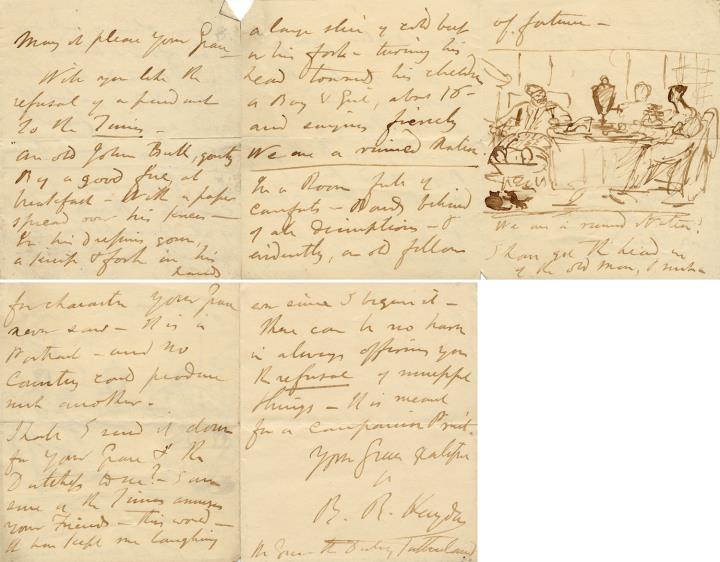 May it please your Grace
Will you like the
refusal of a pendant
to the Times –
An old John Bull, gouty
By a good fire, at
breakfast – With a paper
spread over his knees –
In his dressing gown,
a knife & fork in his
hand
a large slice of cold beef
on his fork – turning his
head toward his children
a Boy & Girl, about 16 –
and saying fiercely
We are a ruined Nation
In a Room full of
comforts – Hoards behind
of all descriptions – &
evidently, an old fellow
of fortune –
We are a ruined Nation!
I have got the head in
of the old man, & such a
for character your Grace
never saw – It is a
Portrait – and no
Country could produce
such another.
I hope I send it down
for your Grace & the
Dutchess to see? – I am
sure as the Times amuses
your Friends – this would –
It has kept me laughing
ever since I began it –
There can be no harm
in always offering you
the refusal of
things – It is meant
for a companion Print
Your Grace's
B. R. Haydon
His Grace the Duke of Sutherland